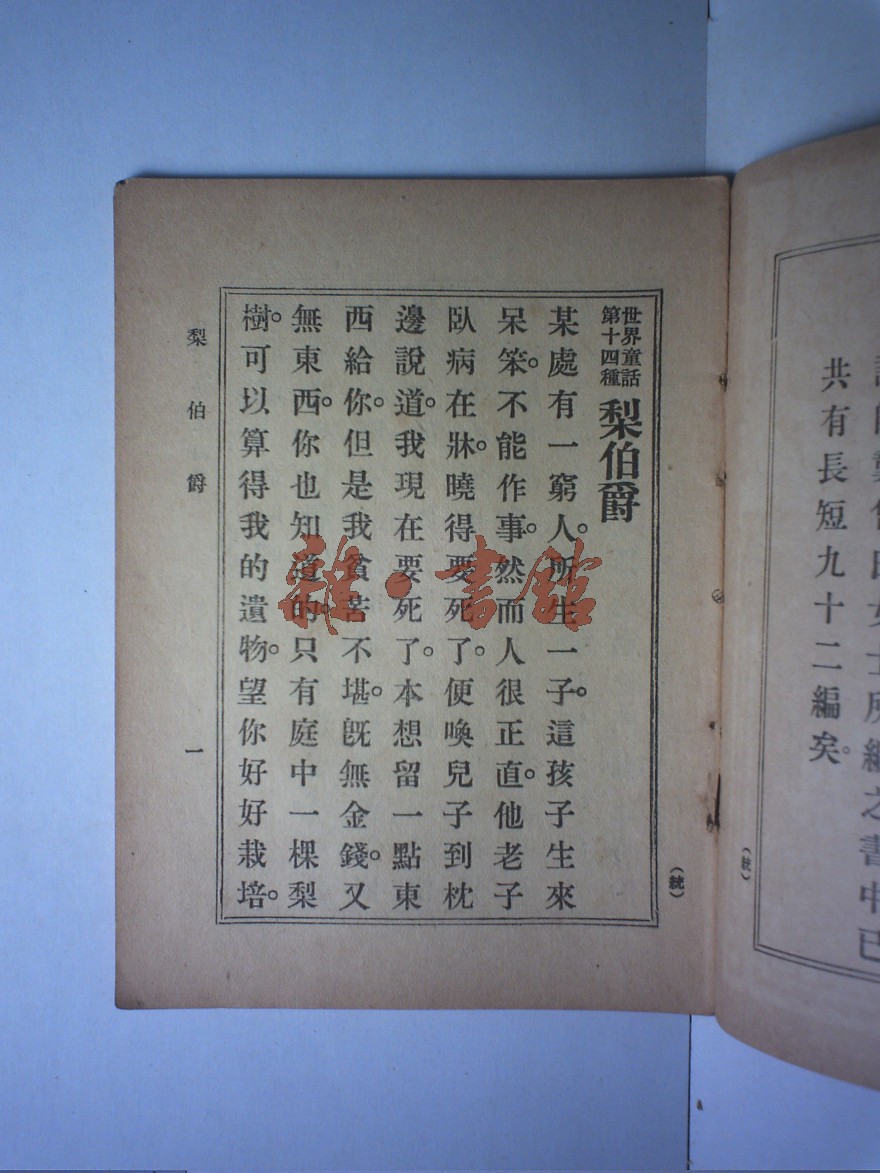 世界童話
第十四種
梨伯爵
某處有一窮人。所生一子。這孩子生來
呆笨。不能作事。然而人很正直。他老子
臥病在牀。曉得要死了。便喚兒子到枕
邊說道。我現在要死了。本想留一點東
西給你。但是我貧苦不堪。旣無金錢。又
無東西。你也知道的。只有庭中一棵梨
樹。可以算得我的遺物。望你好好栽培。
梨伯爵
一
(統)
雜·書館
所編之書中已
共有長短九十二編矣。
(統)